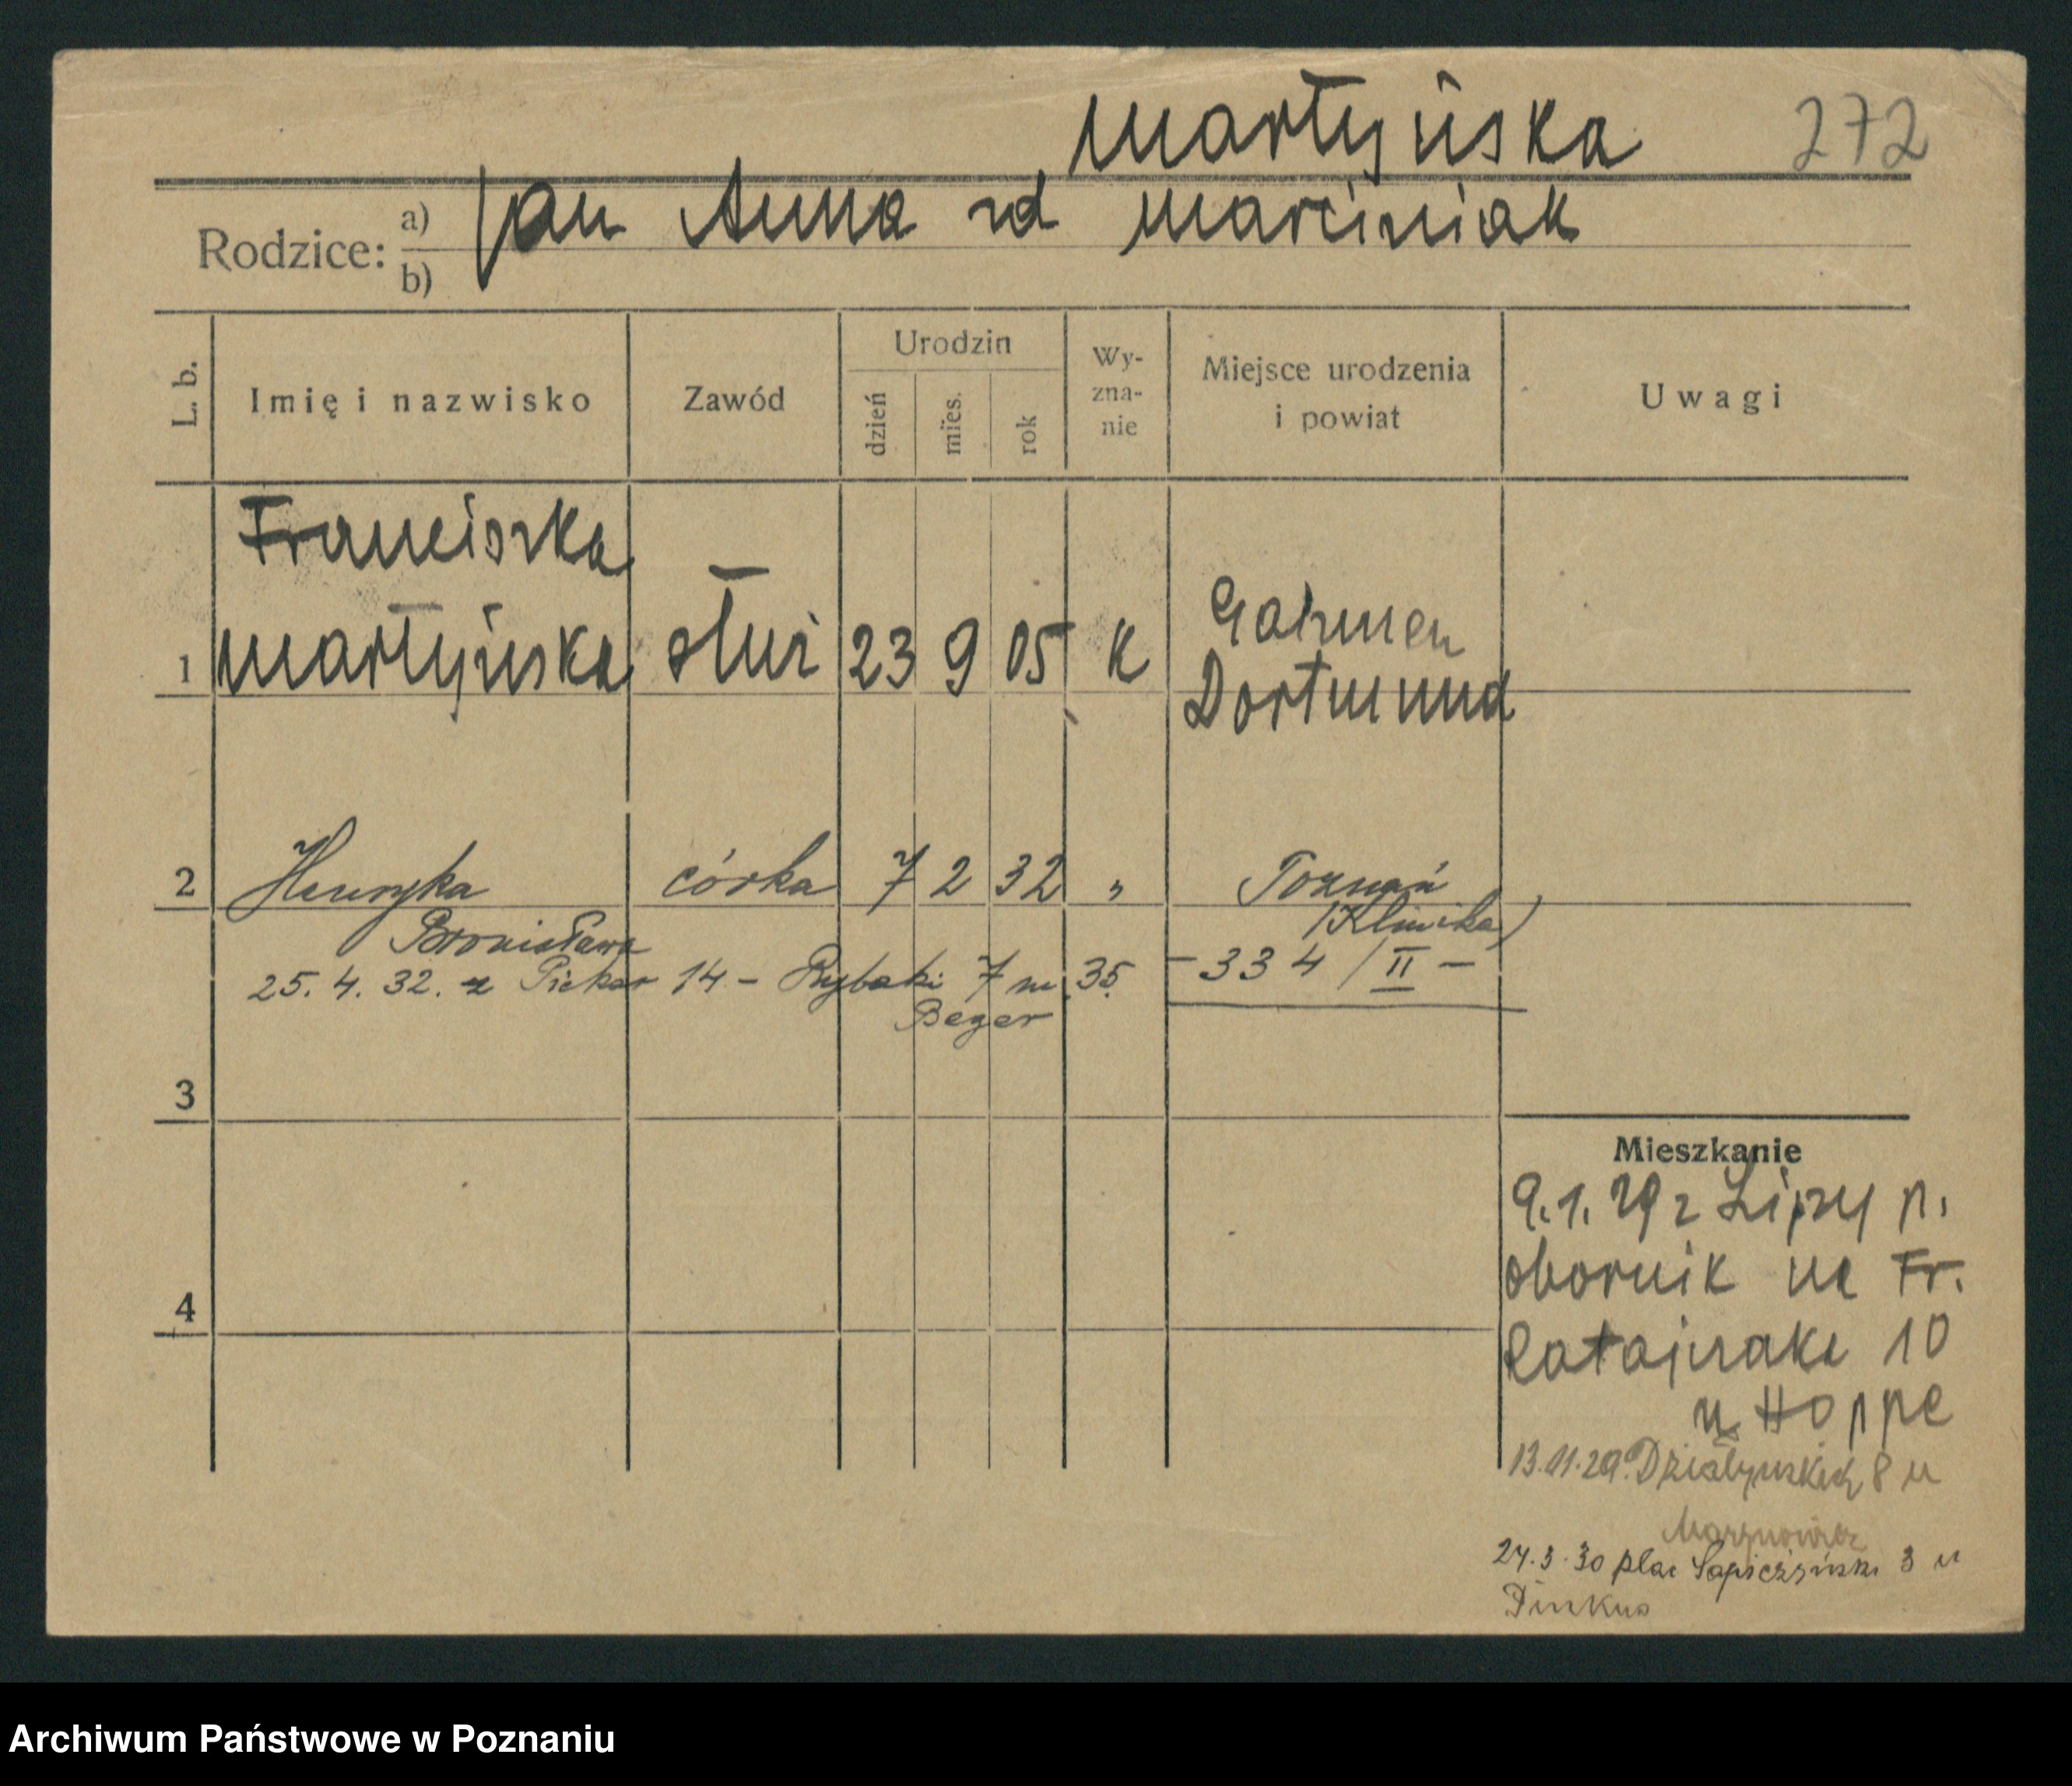 Martyńska 272
Rodzice: a) Jan Anna zd Marciniak
b)
L. b. Imię i nazwisko Zawód Urodzin dzień mies. rok Wy-zna-nie Miejsce urodzenia i powiat Uwagi
Franciszka
1 Martyńska służ 23 9 05 K Gahmen
Dortmund
2 Henryka córka 7 2 32 " Poznań
Bronisława (Klinika)
25. 4. 32. z Piekar 14 - Rybaki 7 m. 35. - 334 / II -
Beger
3
Mieszkanie
9.1.29 z Lipzy p.
obornik na Fr.
4
Ratajczaka 10
u Hoppe
13.11.29. Działyńskich 8 u
24.3.30 plac Sapieżyński 3 u
Pinkus
Archiwum Państwowe w Poznaniu